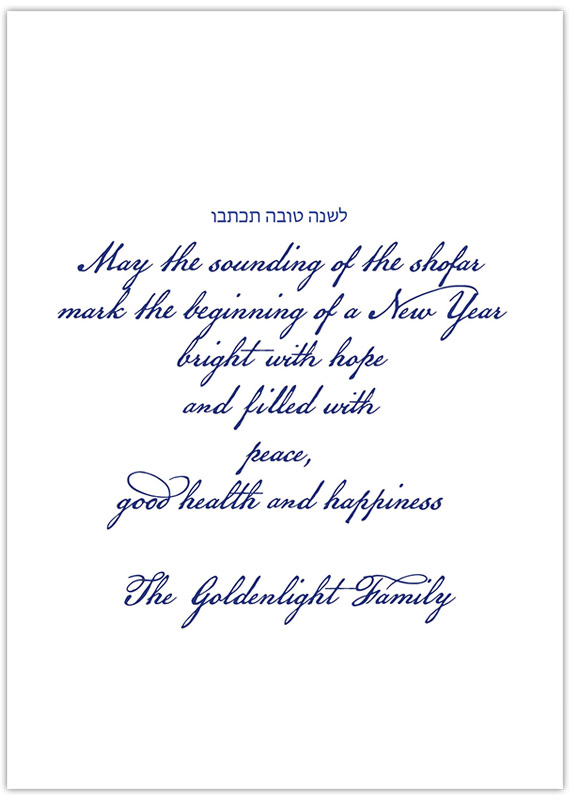 לשנה טובה תכתבו
May the sounding of the shofar
mark the beginning of a New Year
bright with hope
and filled with
peace,
good health and happiness
The Goldenlight Family